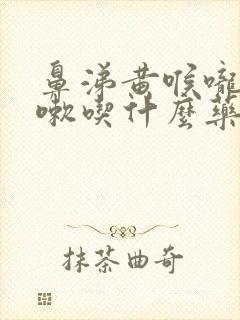 鼻涕黄喉嚨
嗽喫什麼藥
抹茶曲奇